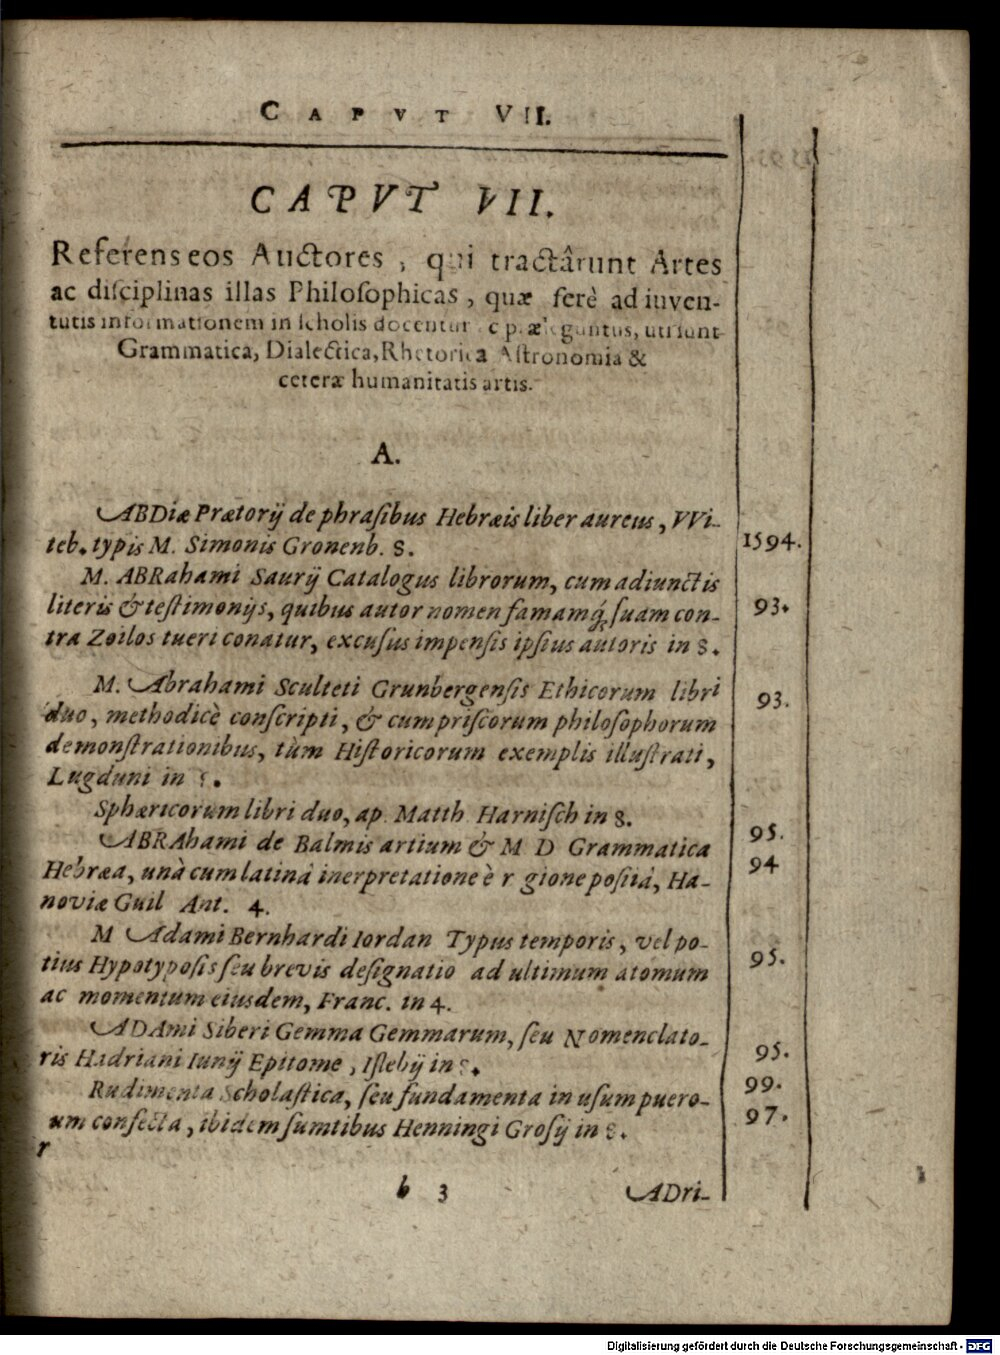 CAPVT VII.
CAPVT VII.
Referens eos Auctores, qui tractârunt Artes
ac disciplinas illas Philosophicas, quæ ferè ad iuven-
tutis informationem in scholis docentur, uti sunt
Grammatica, Dialectica, Rhetorica Astronomia &
ceteræ humanitatis artis.
A.
ABDiæ Prætorij de phrasibus Hebræis liber aureus, VVi-
teb. typis M. Simonis Gronenb. 8. 1594.
M. ABRahami Saurij Catalogus librorum, cum adiunctis
literis & testimonijs, quibus autor nomen famamq́; suam con- 93.
tra Zoilos tueri conatur, excusus impensis ipsius autoris in 8.
M. Abrahami Sculteti Grunbergensis Ethicorum libri
duo, methodicè conscripti, & cum priscorum philosophorum 93.
demonstrationibus, tùm Historicorum exemplis illustrati,
Lugduni in
Sphæricorum libri duo, ap. Matth. Harnisch in 8. 95.
ABRAhami de Balmis artium & M D Grammatica 94
Hebræa, unà cum latinâ inerpretatione è r gione positâ, Ha-
noviæ Guil Ant. 4.
M Adami Bernhardi Iordan Typus temporis, vel po-
tius Hypotyposis seu brevis designatio ad ultimum atomum 95.
ac momentum eiusdem, Franc. in 4.
ADAmi Siberi Gemma Gemmarum, seu Nomenclato-
ris Hadriani Iunij Epitome, Islebij in 8. 95.
Rudimenta Scholastica, seu fundamenta in usum puero- 99.
um confecta, ibidem sumtibus Henningi Grosij in 8. 97.
r
b 3 ADri-
Digitalisierung gefördert durch die Deutsche Forschungsgemeinschaft - DFG